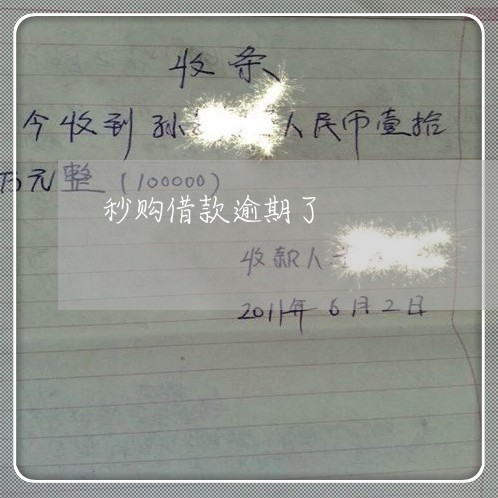 收条
今收到孙 人民币壹拾
万元整(100000)
秒购借款逾期了
收款人
2011年6月2日